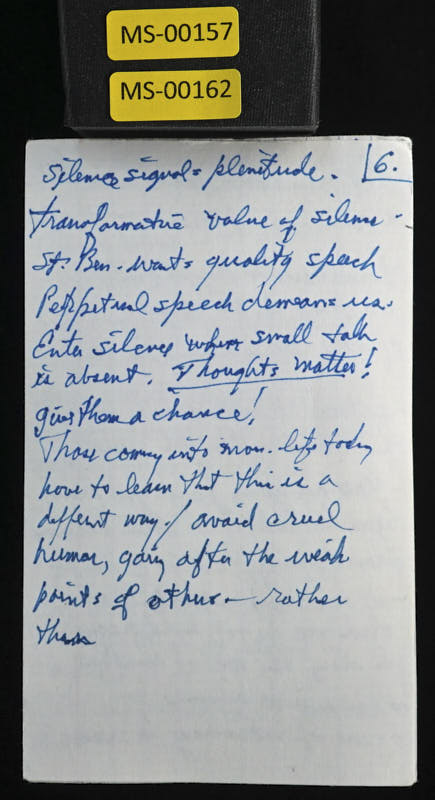 MS-00157
MS-00162
6.
Silence signals plenitude.
Transformative value of silence.
St. Ben. wants quality speech
Perpetual speech demeans us.
Enter silence where small talk
is absent. Thoughts matter!
give them a chance!
Those coming into mon. life today
have to learn that this is a
different way. / avoid cruel
humor, going after the weak
points of others - rather
than